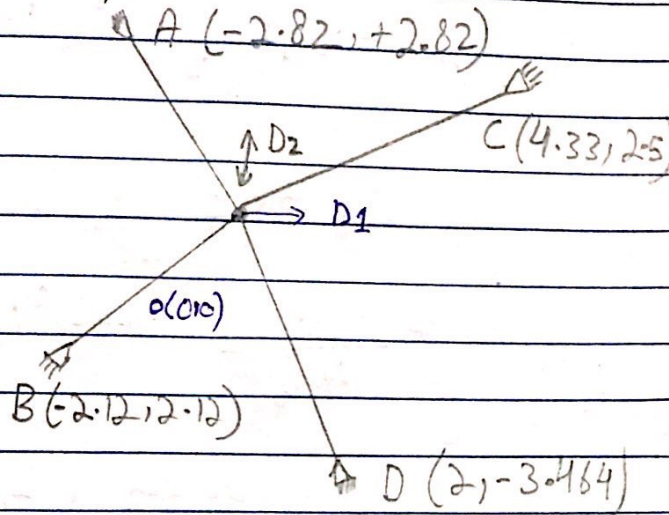 A (-2.82, +2.82)
C (4.33, 2.5)
D2
D1
O(0,0)
B (-2.12, 2.12)
D (2, -3.464)